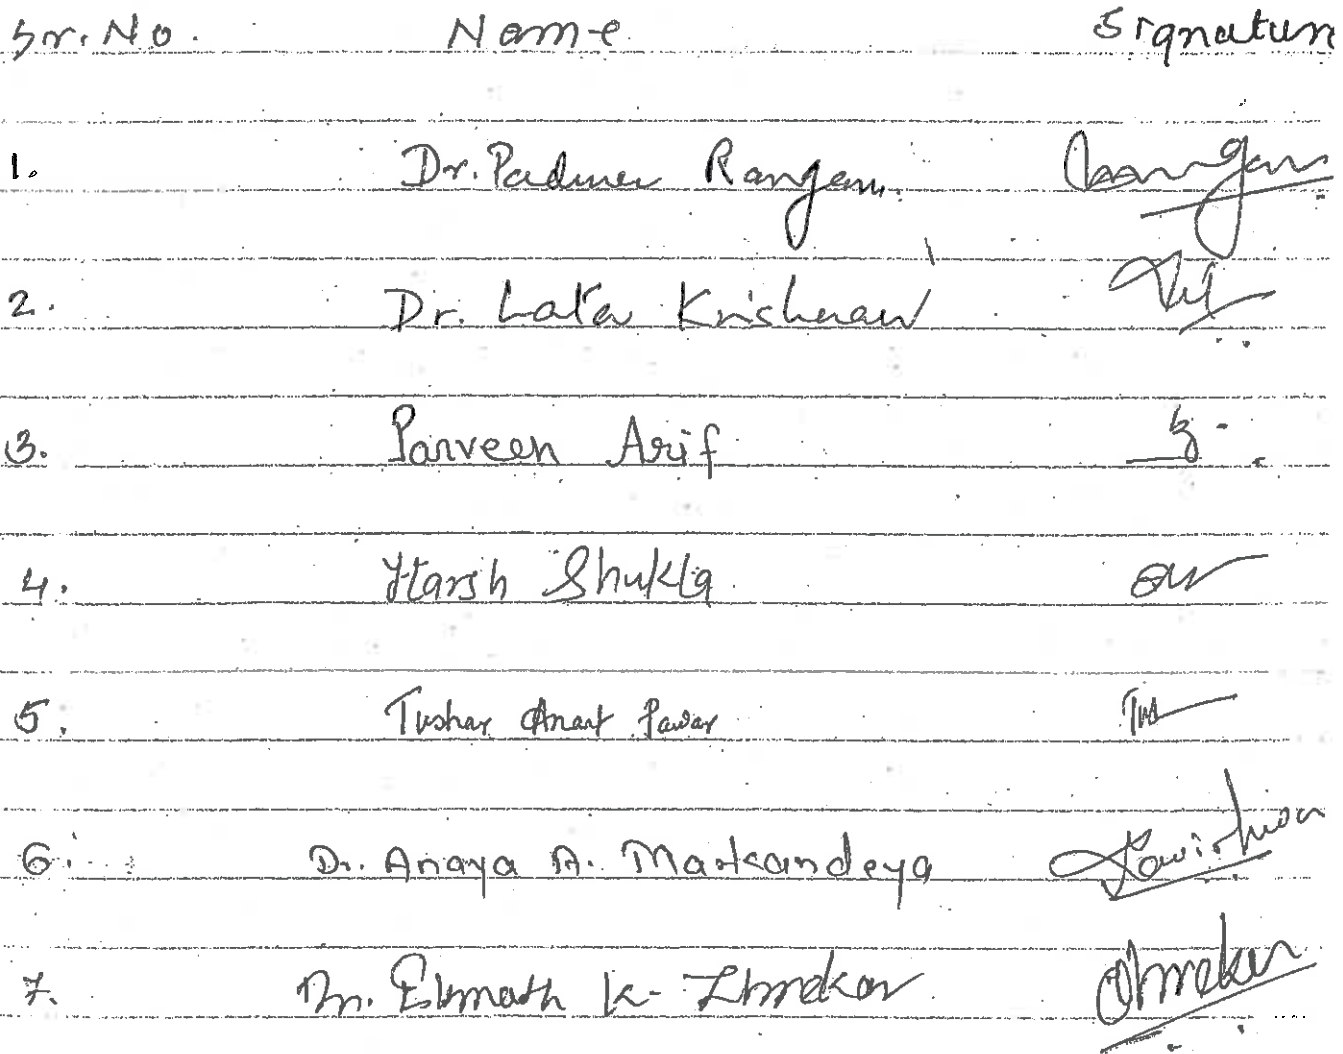 Sr. No. Name Signature
1. Dr. Padma Rangan.
2. Dr. Lata Krishnan
3. Parveen Arif
4. Harsh Shukla
5. Tushar Anant Pawar
6. Dr. Anaya A. Markandeya
7. Dr. Eknath K.